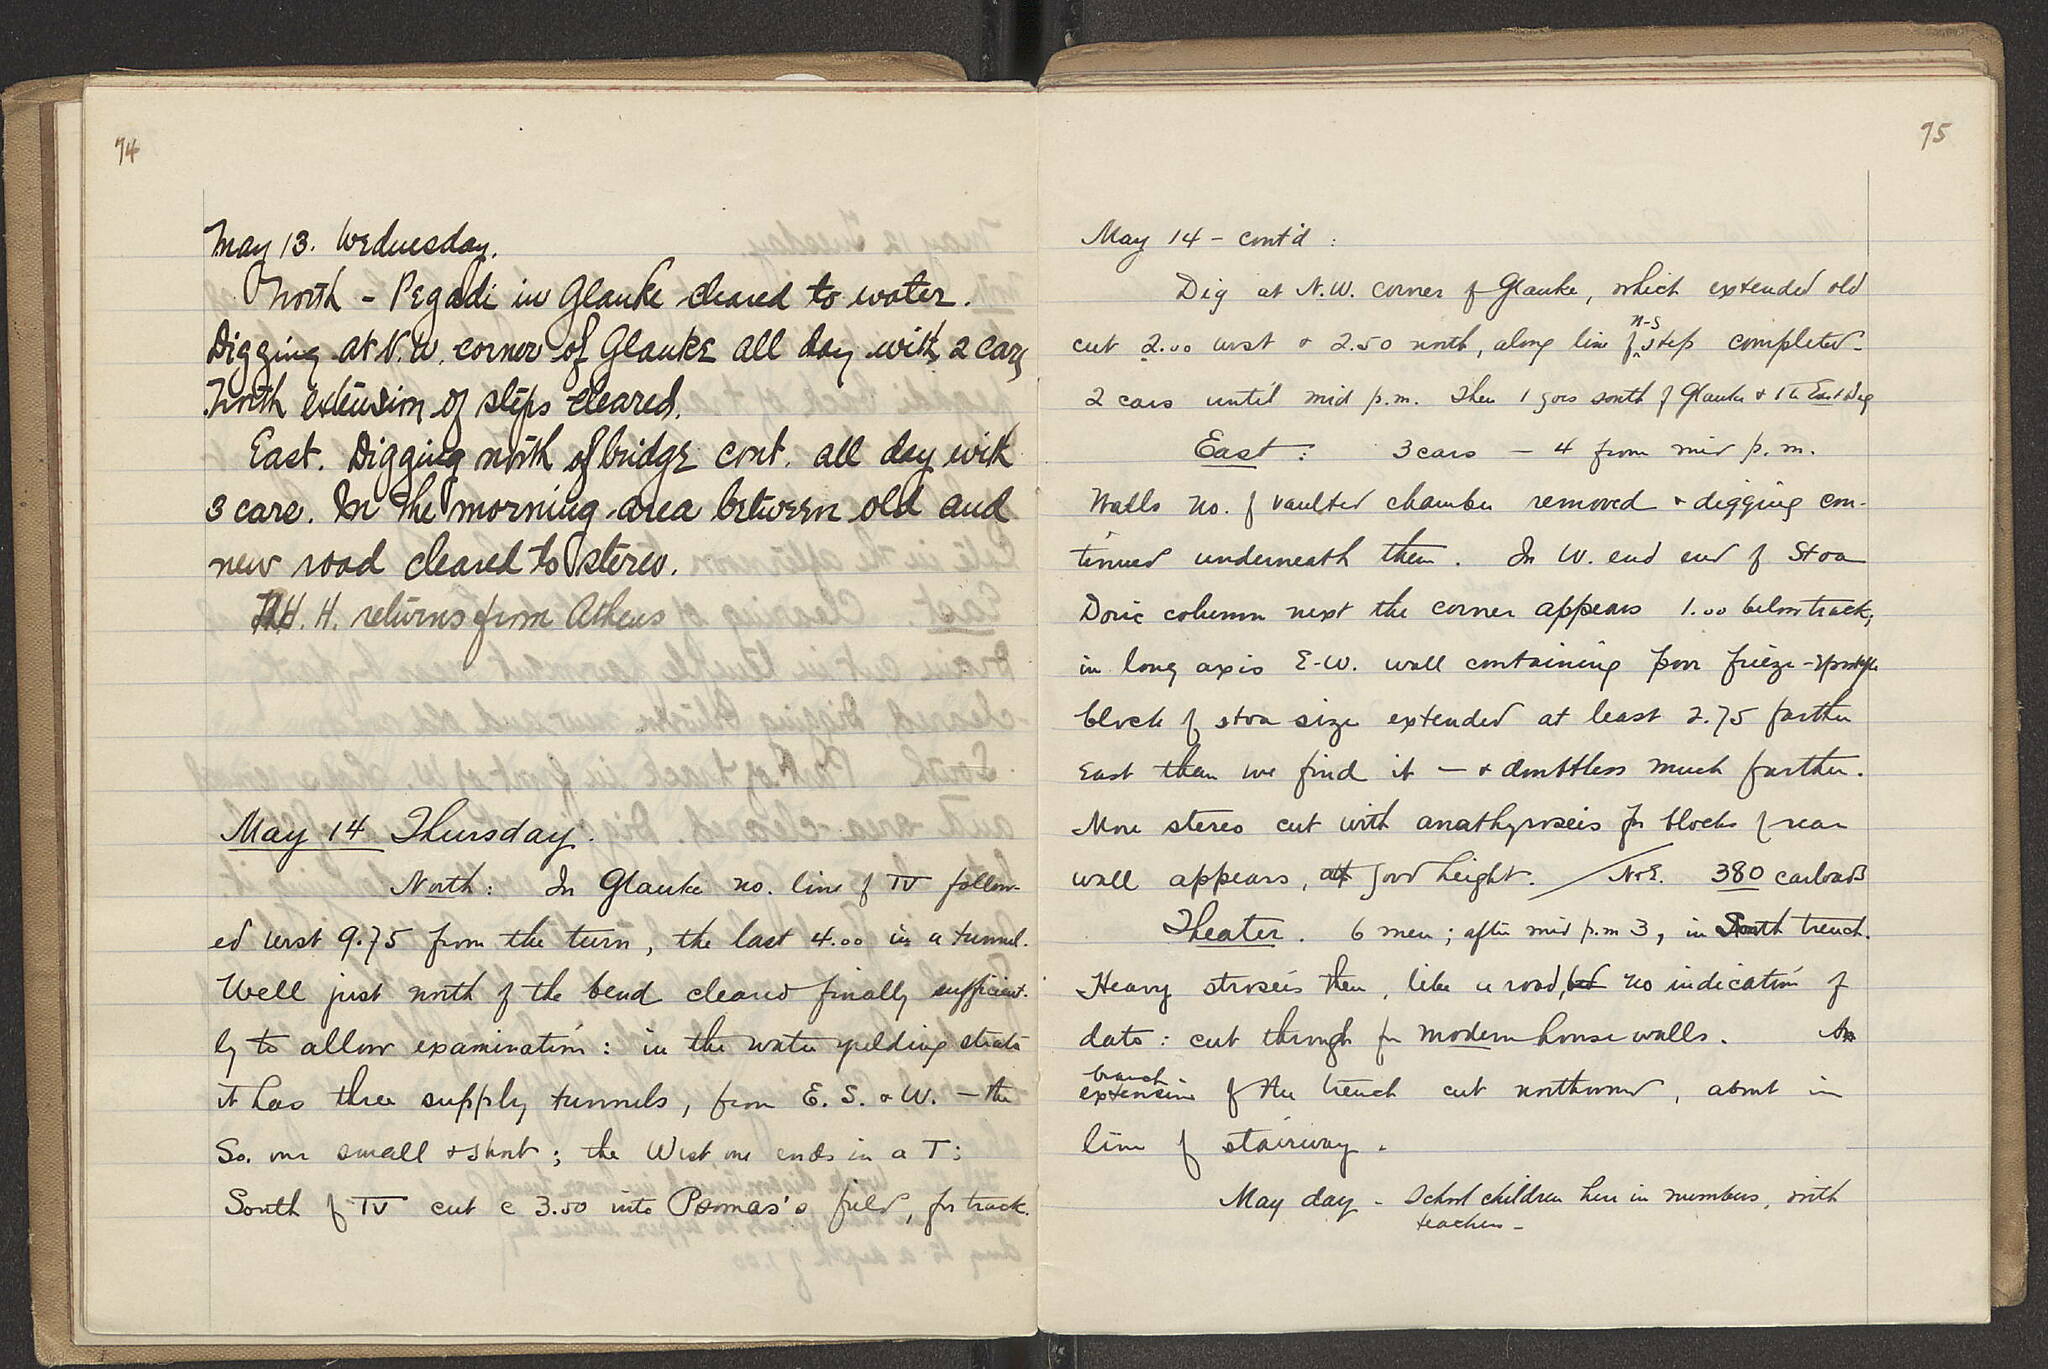 74
May 13. Wednesday.
North - Pegadi in Glauke cleared to water.
Digging at N.W. corner of Glauke all day with 2 cars
North extension of steps cleared.
East. Digging north of bridge cont. all day with
3 cars. In the morning area between old and
new road cleared to stereo.
H. H. returns from Athens
May 14 Thursday.
North: In Glauke no. line of IV follow-
ed west 9.75 from the turn, the last 4.00 in a tunnel.
Well just north of the bend cleared finally sufficient-
ly to allow examination: in the water yielding strata
it has three supply tunnels, from E. S. & W. - the
So. one small & short; the West one ends in a T;
South of IV cut c 3.50 into Psomas's field, for track.
75
May 14 - cont'd :
Dig at N.W. corner of Glauke, which extended old
cut 2.00 west & 2.50 north, along line of n-s step completed.
2 cars until mid p.m. Then 1 goes south of Glauke & 1 to East Dig
East : 3 cars - 4 from mid p.m.
Walls no. of vaulted chamber removed & digging con-
tinued underneath them. In W. end end of Stoa
Doric column next the corner appears 1.00 below track,
in long axis E-W. wall containing poor frieze-epistyle
block of stoa size extended at least 2.75 farther
East than we find it - & doubtless much farther.
More stereo cut with anathyrosis for blocks of rear
wall appears, at good height. / N&E. 380 carloads
Theater. 6 men; after mid p.m 3, in South trench.
Heavy strosis then, like a road, but no indication of
date: cut through for modern house walls. An
branch
extension of the trench cut northward, about in
line of stairway.
May day - School children here in numbers, with
teachers -